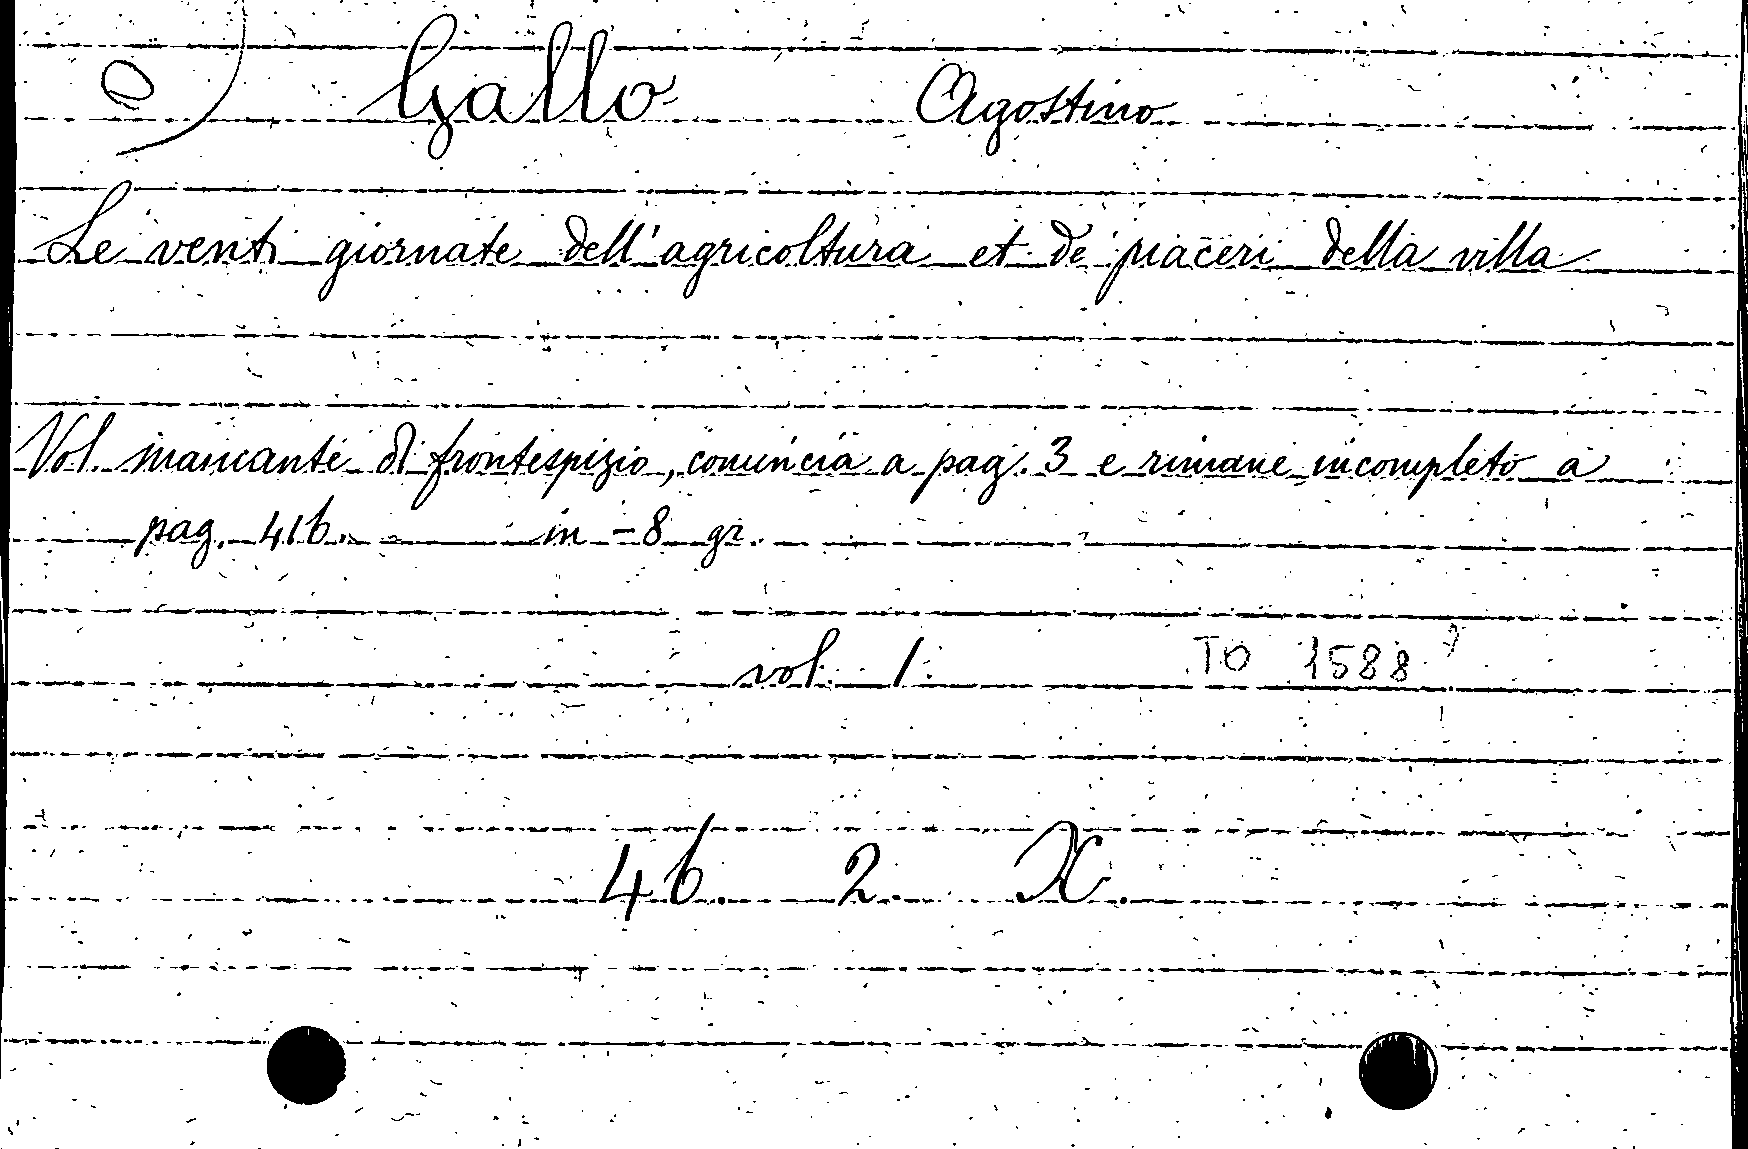 Gallo Agostino
Le venti giornate dell'agricoltura et de' piaceri della villa
Vol. mancante di frontespizio, comincia a pag. 3 e rimane incompleto a
pag. 416. in-8 gr.
vol. 1. TO 1588 ?
46. 2. X.